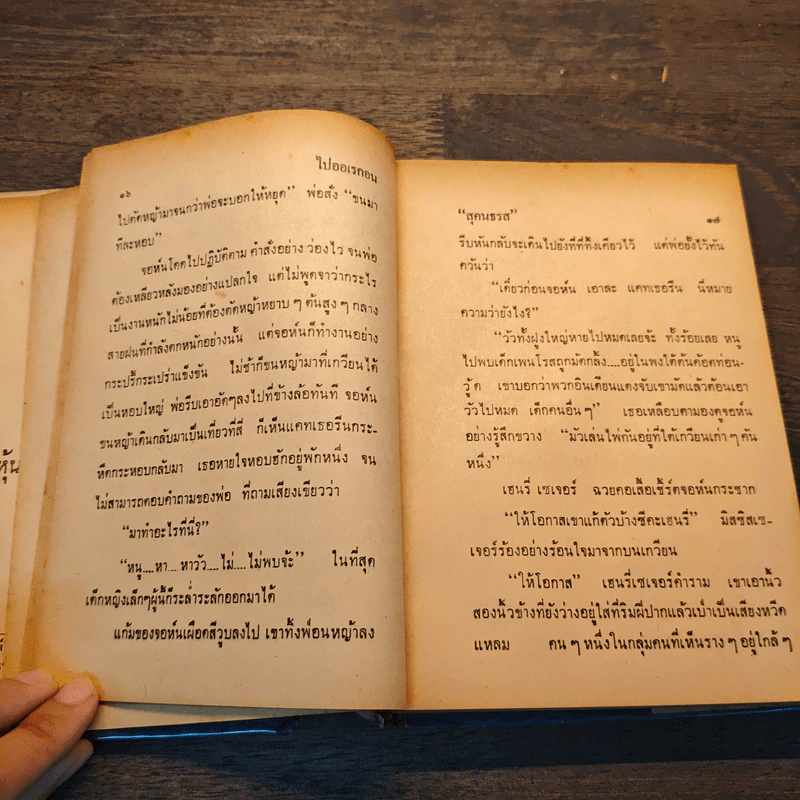 หุ้น
ไปออเรกอน
๑๖
ไปตัดหญ้ามาจนกว่าพ่อจะบอกให้หยุด” พ่อสั่ง “ขนมา
ทีละหอบ”
จอห์นโดดไปปฏิบัติตาม คำสั่งอย่าง ว่องไว จนพ่อ
ต้องเหลียวหลังมองอย่างแปลกใจ แต่ไม่พูดจาว่ากระไร
เป็นงานหนักไม่น้อยที่ต้องตัดหญ้าหยาบ ๆ ต้นสูง ๆ กลาง
สายฝนที่กำลังตกหนักอย่างนั้น แต่จอห์นก็ทำงานอย่าง
กระปรี้กระเปร่าแข็งขัน ไม่ช้าก็ขนหญ้ามาที่เกวียนได้
เป็นหอบใหญ่ พ่อรีบเอาอัดๆลงไปที่ข้างล้อทันที จอห์น
ขนหญ้าเดินกลับมาเป็นเที่ยวที่สี่ ก็เห็นแคทเธอรีนกระ-
หืดกระหอบกลับมา เธอหายใจหอบฮักอยู่พักหนึ่ง จน
ไม่สามารถตอบคำถามของพ่อ ที่ถามเสียงเขียวว่า
“มาทำอะไรที่นี่?”
“หนู....หา....หาวัว....ไม่....ไม่พบจ้ะ” ในที่สุด
เด็กหญิงเล็กๆผู้นี้ก็ระล่ำระลักออกมาได้
แก้มของจอห์นเผือดสีวูบลงไป เขาทิ้งฟ่อนหญ้าลง
“สุคนธรส”
๑๗
รีบหันกลับจะเดินไปยังที่ที่ทิ้งเคียวไว้ แต่พ่อยั้งไว้ทัน
ควันว่า
“เดี๋ยวก่อนจอห์น เอาละ แคทเธอรีน นี่หมาย
ความว่ายังไง?”
“วัวทั้งฝูงใหญ่หายไปหมดเลยจ้ะ ทั้งร้อยเลย หนู
ไปพบเด็กเพนโรสถูกมัดกลิ้ง....อยู่ในพงใต้ต้นค้อตท่อน-
วู้ด เขาบอกว่าพวกอินเดียนแดงจับเขามัดแล้วต้อนเอา
วัวไปหมด เด็กคนอื่น ๆ” เธอเหลือบตามองดูจอห์น
อย่างรู้สึกขวาง “มัวเล่นไพ่กันอยู่ที่ใต้เกวียนเก่า ๆ คัน
หนึ่ง”
เฮนรี่ เซเจอร์ ฉวยคอเสื้อเชิ้ร์ตจอห์นกระชาก
“ให้โอกาสเขาแก้ตัวบ้างซีคะเฮนรี่” มิสซิสเซ-
เจอร์ร้องอย่างร้อนใจมาจากบนเกวียน
“ให้โอกาส” เฮนรี่เซเจอร์คำราม เขาเอานิ้ว
สองนิ้วข้างที่ยังว่างอยู่ใส่ที่ริมฝีปากแล้วเป่าเป็นเสียงหวีด
แหลม คน ๆ หนึ่งในกลุ่มคนที่เห็นราง ๆ อยู่ใกล้ ๆ